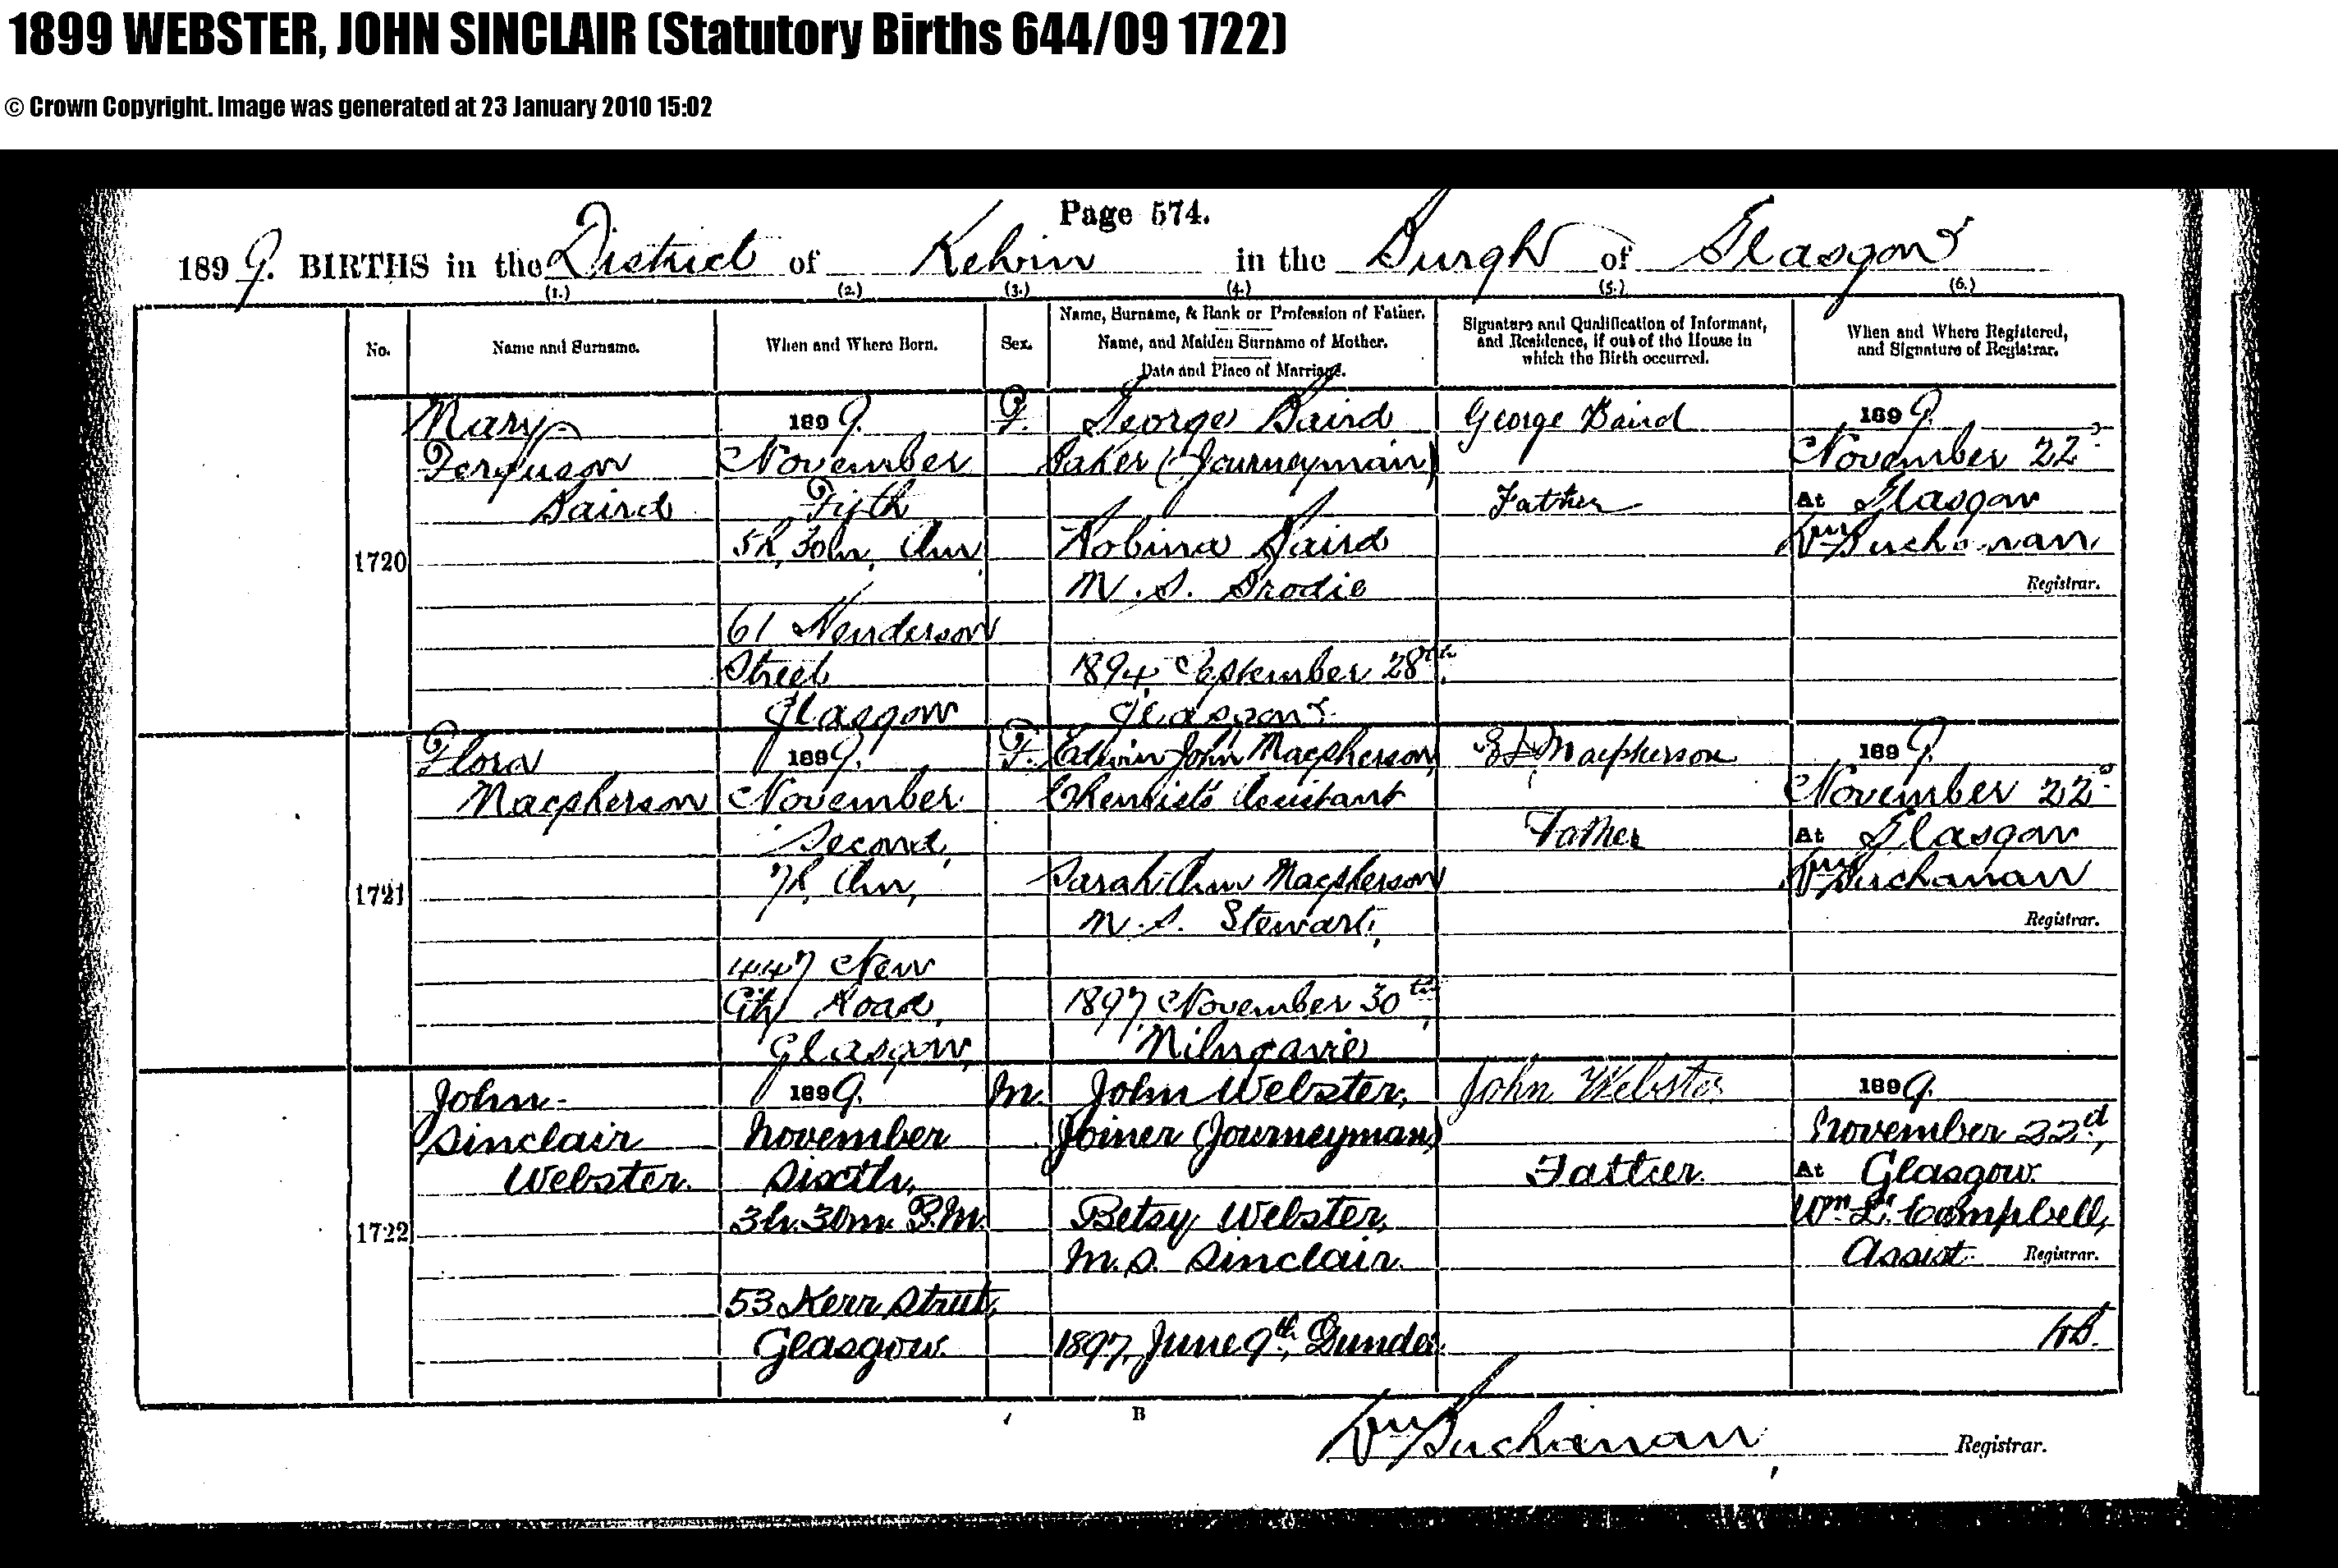 1899 WEBSTER, JOHN SINCLAIR (Statutory Births 644/09 1722)
© Crown Copyright. Image was generated at 23 January 2010 15:02
Page 574.
1899. BIRTHS in the District of Kelvin in the Burgh of Glasgow
(1.) (2.) (3.) (4.) (5.) (6.)
No.
Name and Surname.
When and Where Born.
Sex.
Name, Surname, & Rank or Profession of Father.
Name, and Maiden Surname of Mother.
Date and Place of Marriage.
Signature and Qualification of Informant,
and Residence, if out of the House in
which the Birth occurred.
When and Where Registered,
and Signature of Registrar.
1720
Mary
Ferguson
Baird
1899.
November
Fifth
5h, 30m, Am
61 Henderson
Street
Glasgow
F.
George Baird
Baker (Journeyman)
Robina Baird
M.S. Brodie
1894, September 28th.
Glasgow
George Baird
Father
1899.
November 22d
At Glasgow
Wm Buchanan
Registrar.
1721
Flora
Macpherson
1899.
November
Second,
7h, Am,
447 New
City Road,
Glasgow,
F.
Edwin John Macpherson,
Chemist's Assistant
Sarah Ann Macpherson
M.S. Stewart,
1897, November 30th,
Milngavie
E J Macpherson
Father
1899.
November 22d
At Glasgow
Wm Buchanan
Registrar.
1722
John
Sinclair
Webster.
1899.
November
Sixth,
3h. 30m. P.M.
53 Kerr Street,
Glasgow.
M.
John Webster,
Joiner (Journeyman)
Betsy Webster,
M.S. Sinclair.
1897, June 9th, Dundee.
John Webster
Father.
1899.
November 22d,
At Glasgow.
Wm L. Campbell,
Assist. Registrar.
WB.
B
Wm Buchanan, Registrar.